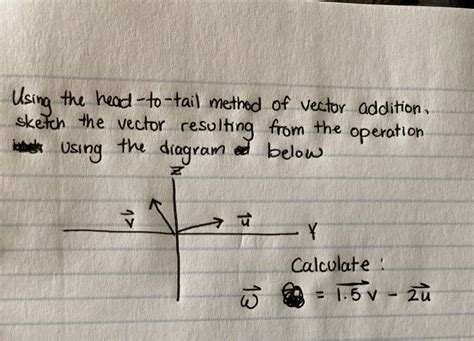 Using the head-to-tail method of vector addition,
sketch the vector resulting from the operation
using the diagram below
Z
v⃗
u⃗
Y
Calculate :
w⃗ = 1.5 v⃗ - 2u⃗